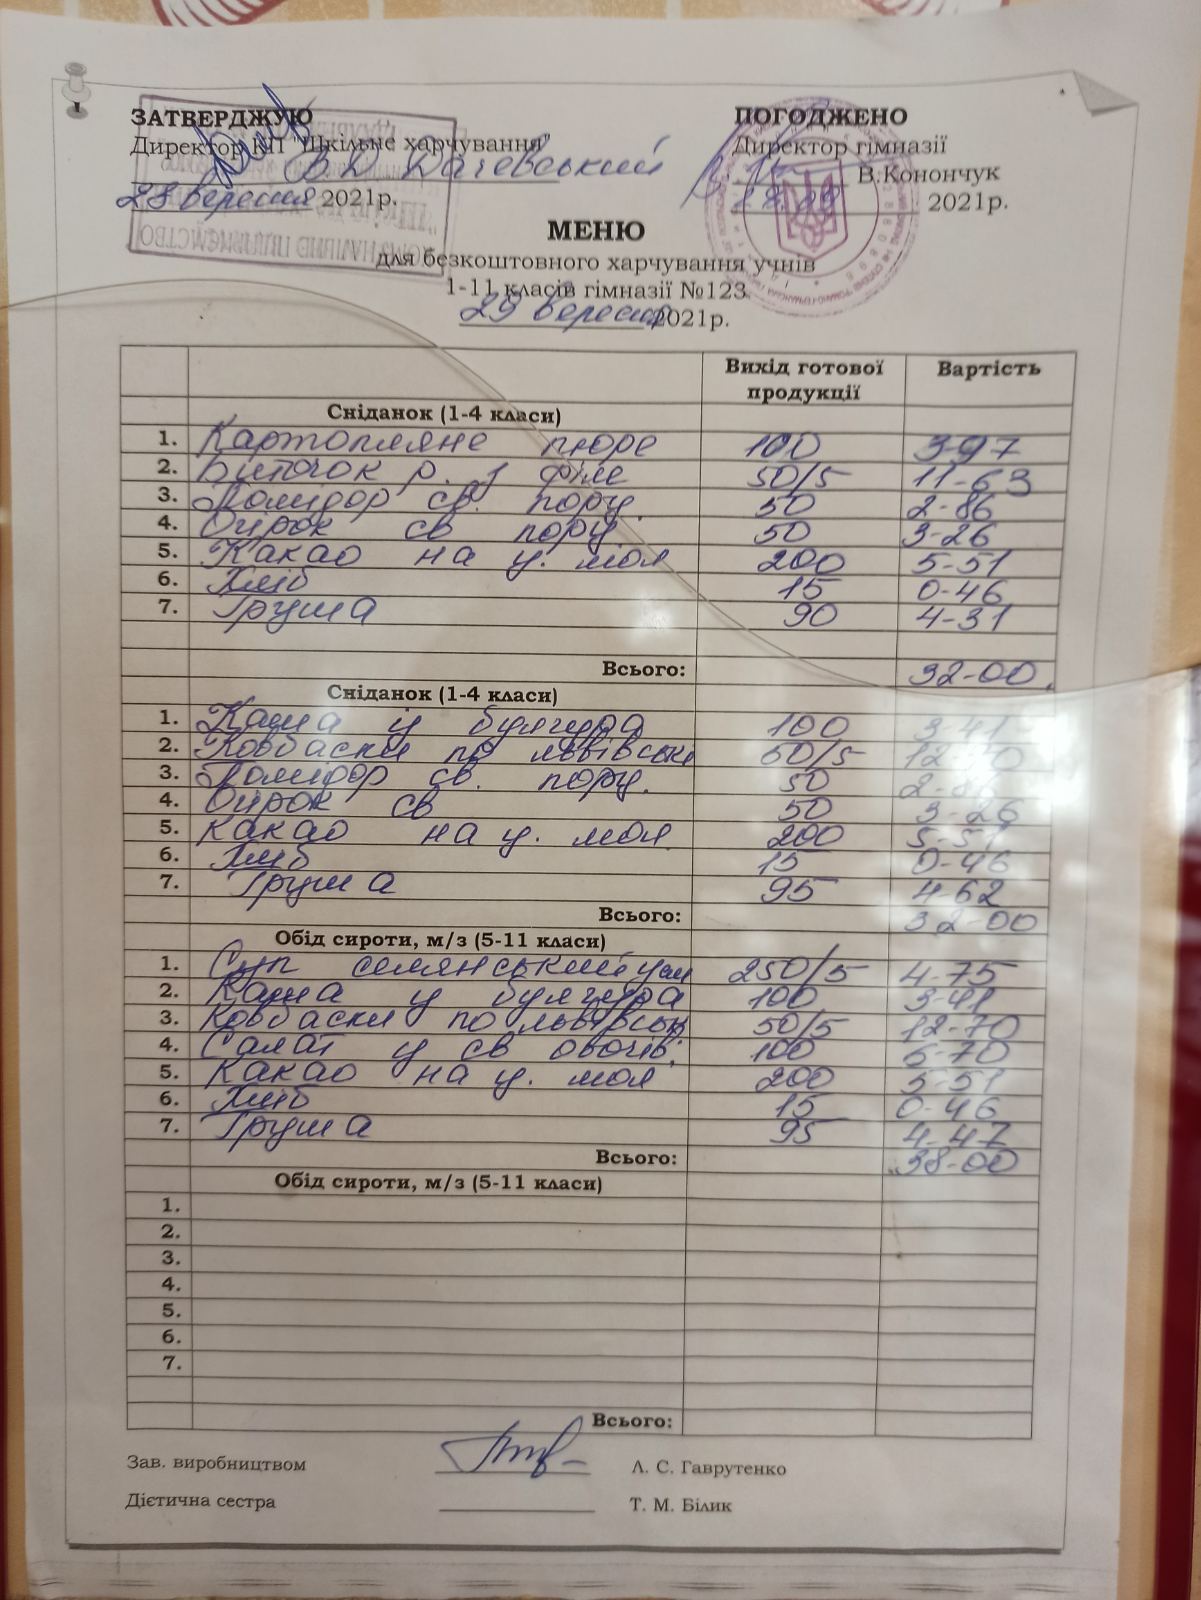 ЗАТВЕРДЖУЮ
Директор КП "Шкільне харчування"
В.Д. Дачевський
28 вересня 2021р.
ПОГОДЖЕНО
Директор гімназії
В.Конончук
28.09 2021р.
МЕНЮ
для безкоштовного харчування учнів
1-11 класів гімназії №123
29 вересня 2021р.
Вихід готової продукції Вартість
Сніданок (1-4 класи)
1. Картопляне пюре 100 3-97
2. Биточок р. з філе 50/5 11-63
3. Помидор св. порц. 50 2-86
4. Огірок св порц. 50 3-26
5. Какао на у. мол 200 5-51
6. Хліб 15 0-46
7. Груша 90 4-31
Всього: 32-00
Сніданок (1-4 класи)
1. Каша із булгура 100 3-41
2. Ковбаски по львівськи /5
3. Помидор св. порц. 50 2-86
4. Огірок св 50 3-26
5. Какао на у. мол 200 5-51
6. Хліб 15 0-46
7. Груша 95 4-62
Всього: 32-00
Обід сироти, м/з (5-11 класи)
1. Суп селянський 250/5 4-75
2. Каша у булгура 100 3-41
3. Ковбаски по львівськ 50/5 12-70
4. Салат у св овочів. 100 -70
5. Какао на у. мол 200 5-51
6. Хліб 15 0-46
7. Груша 95 4-47
Всього: 38-00
Обід сироти, м/з (5-11 класи)
1.
2.
3.
4.
5.
6.
7.
Всього:
Зав. виробництвом Л. С. Гаврутенко
Дієтична сестра Т. М. Білик